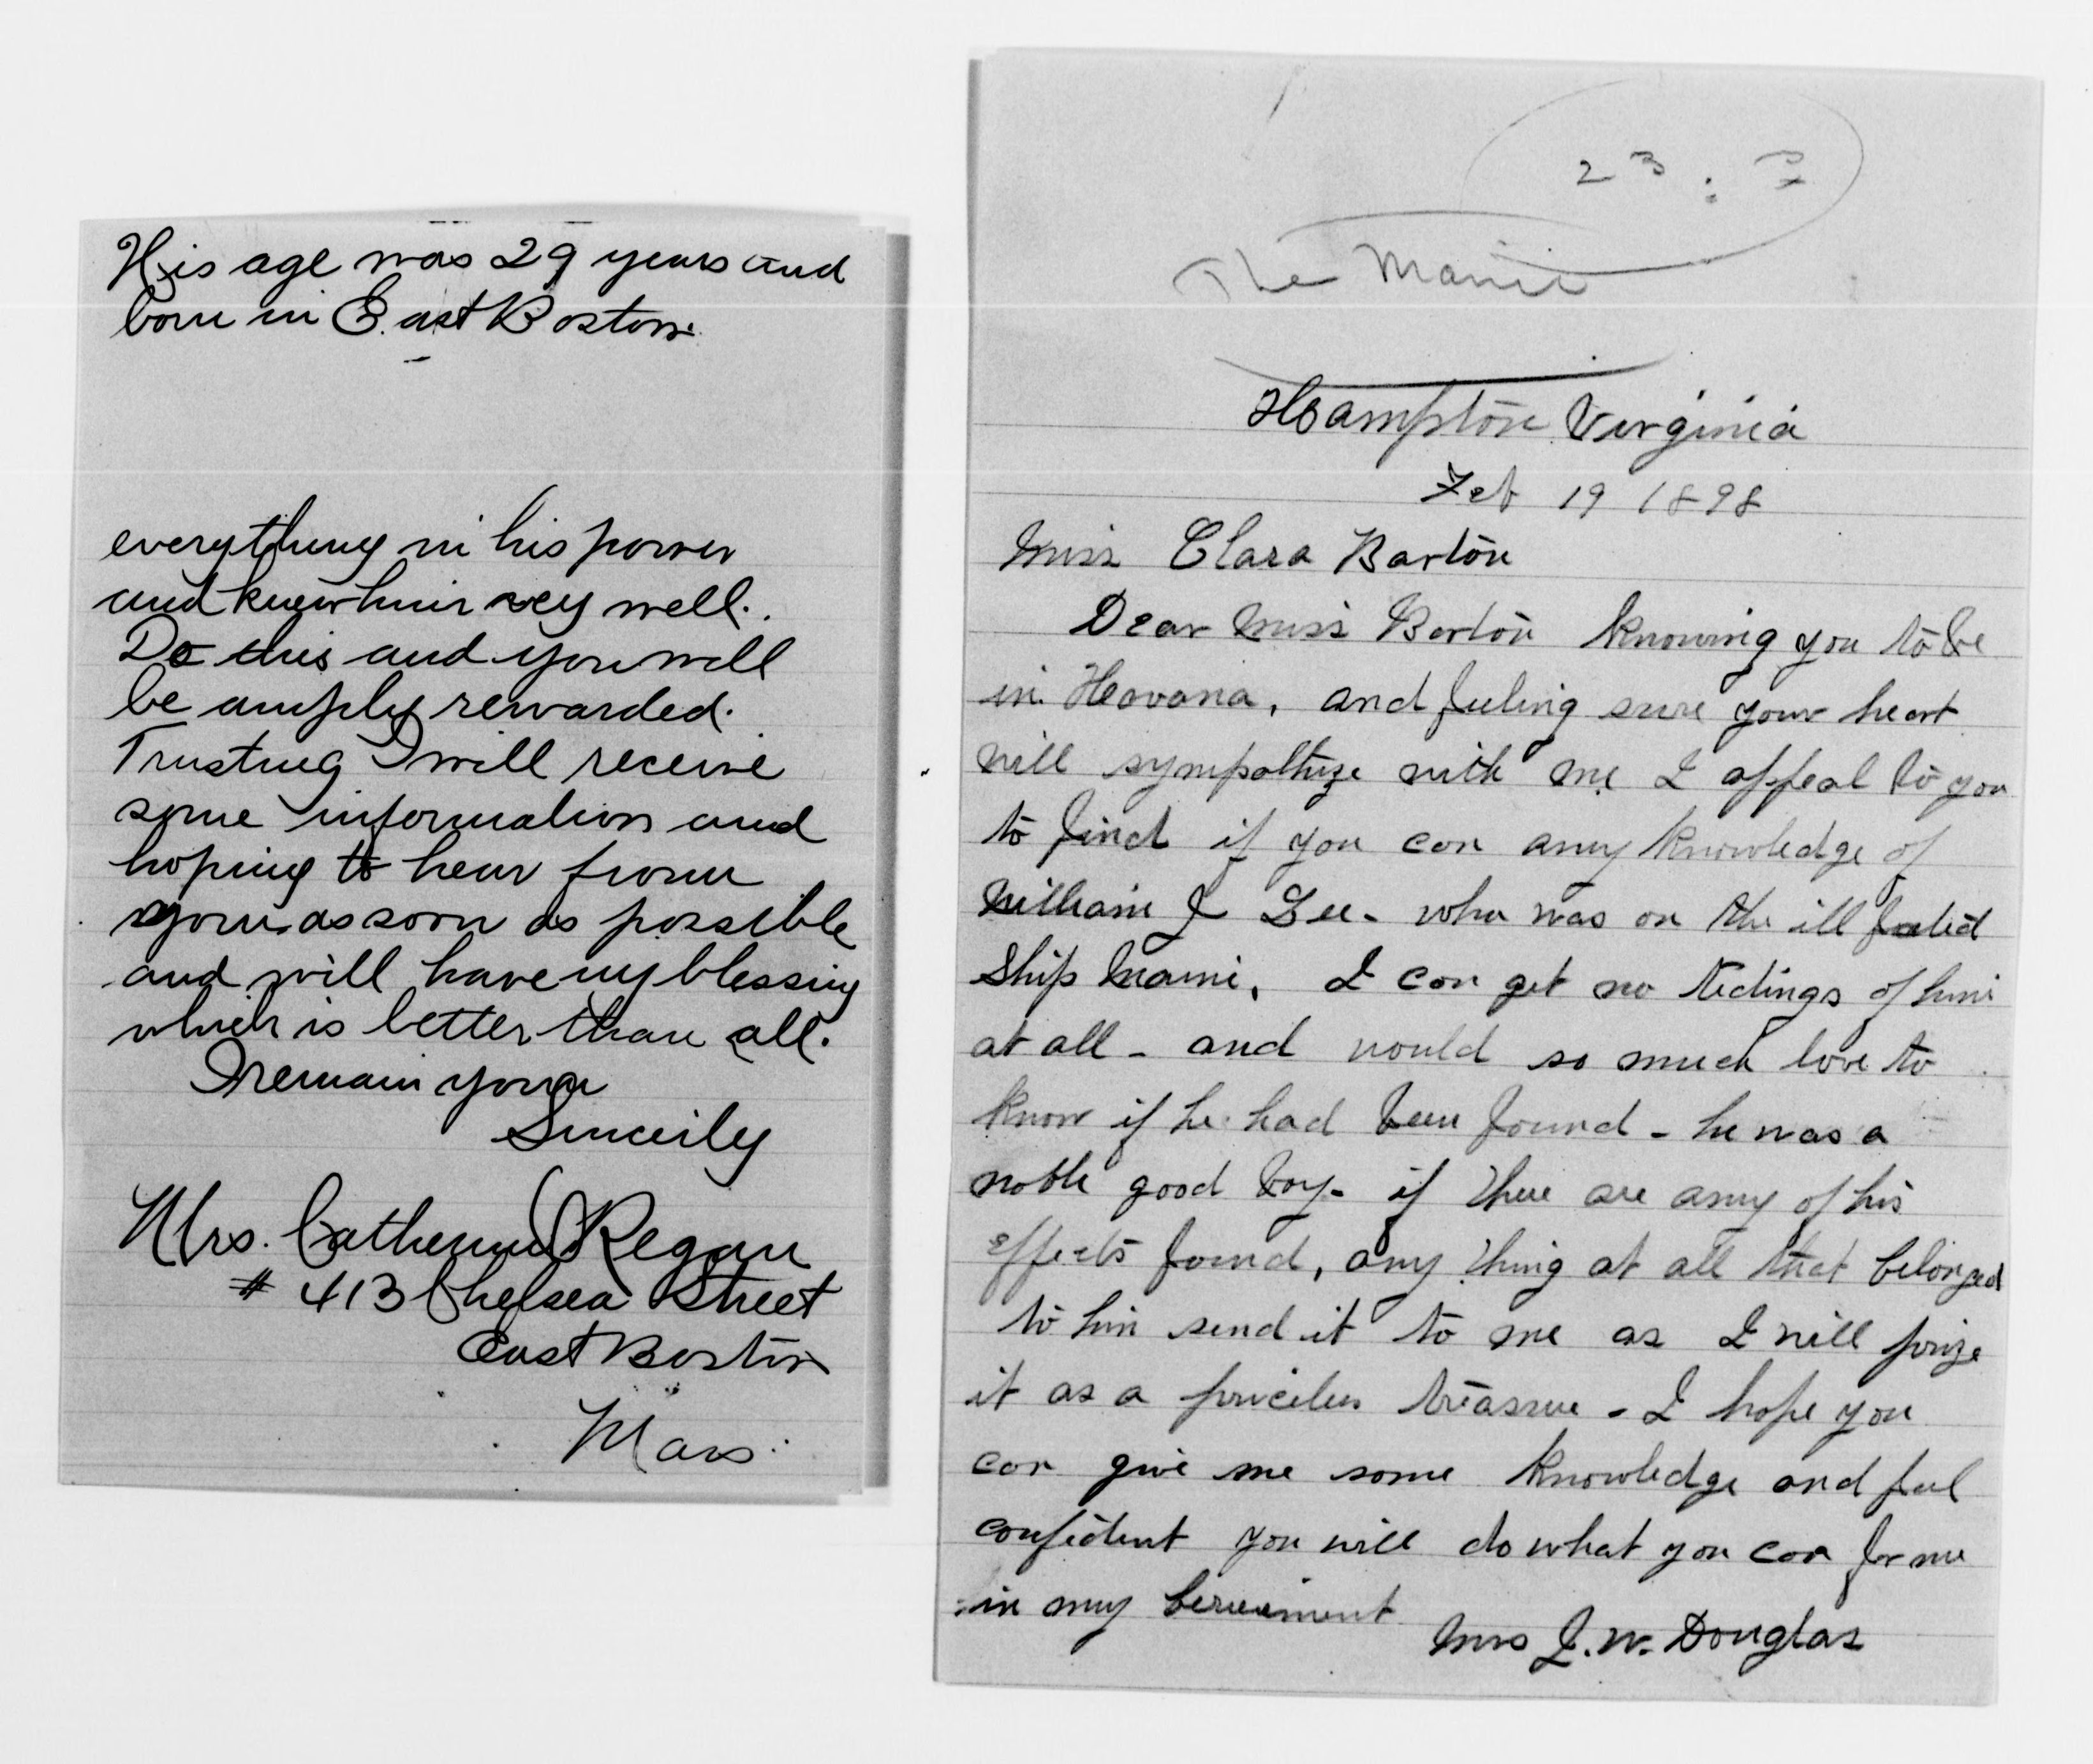 His age was 29 years and
born in East Boston.
everything in his power
and knew him vey well.
Do this and you will
be amply rewarded.
Trusting I will receive
some information and
hoping to hear from
you as soon as possible
and will have my blessing
which is better than all.
I remain your
Sincerly
Mrs. Catherine Regan
# 413 Chelsea Street
East Boston
Mass.
23:
The Maine
Hampton Virginia
Feb 19 1898
Miss Clara Barton
Dear Miss Barton knowing you to be
in Havana, and feeling sure your heart
will sympathize with me I appeal to you
to find if you can any knowledge of
William J Gee - who was on the ill fated
Ship Maine, I can get no tidings of him
at all - and would so much love to
know if he had been found - he was a
noble good boy - if there are any of his
effects found, any thing at all that belonged
to him send it to me as I will prize
it as a priceless treasure - I hope you
can give me some knowledge and feel
confident you will do what you can for me
in my bereavement
Mrs J. W. Douglas